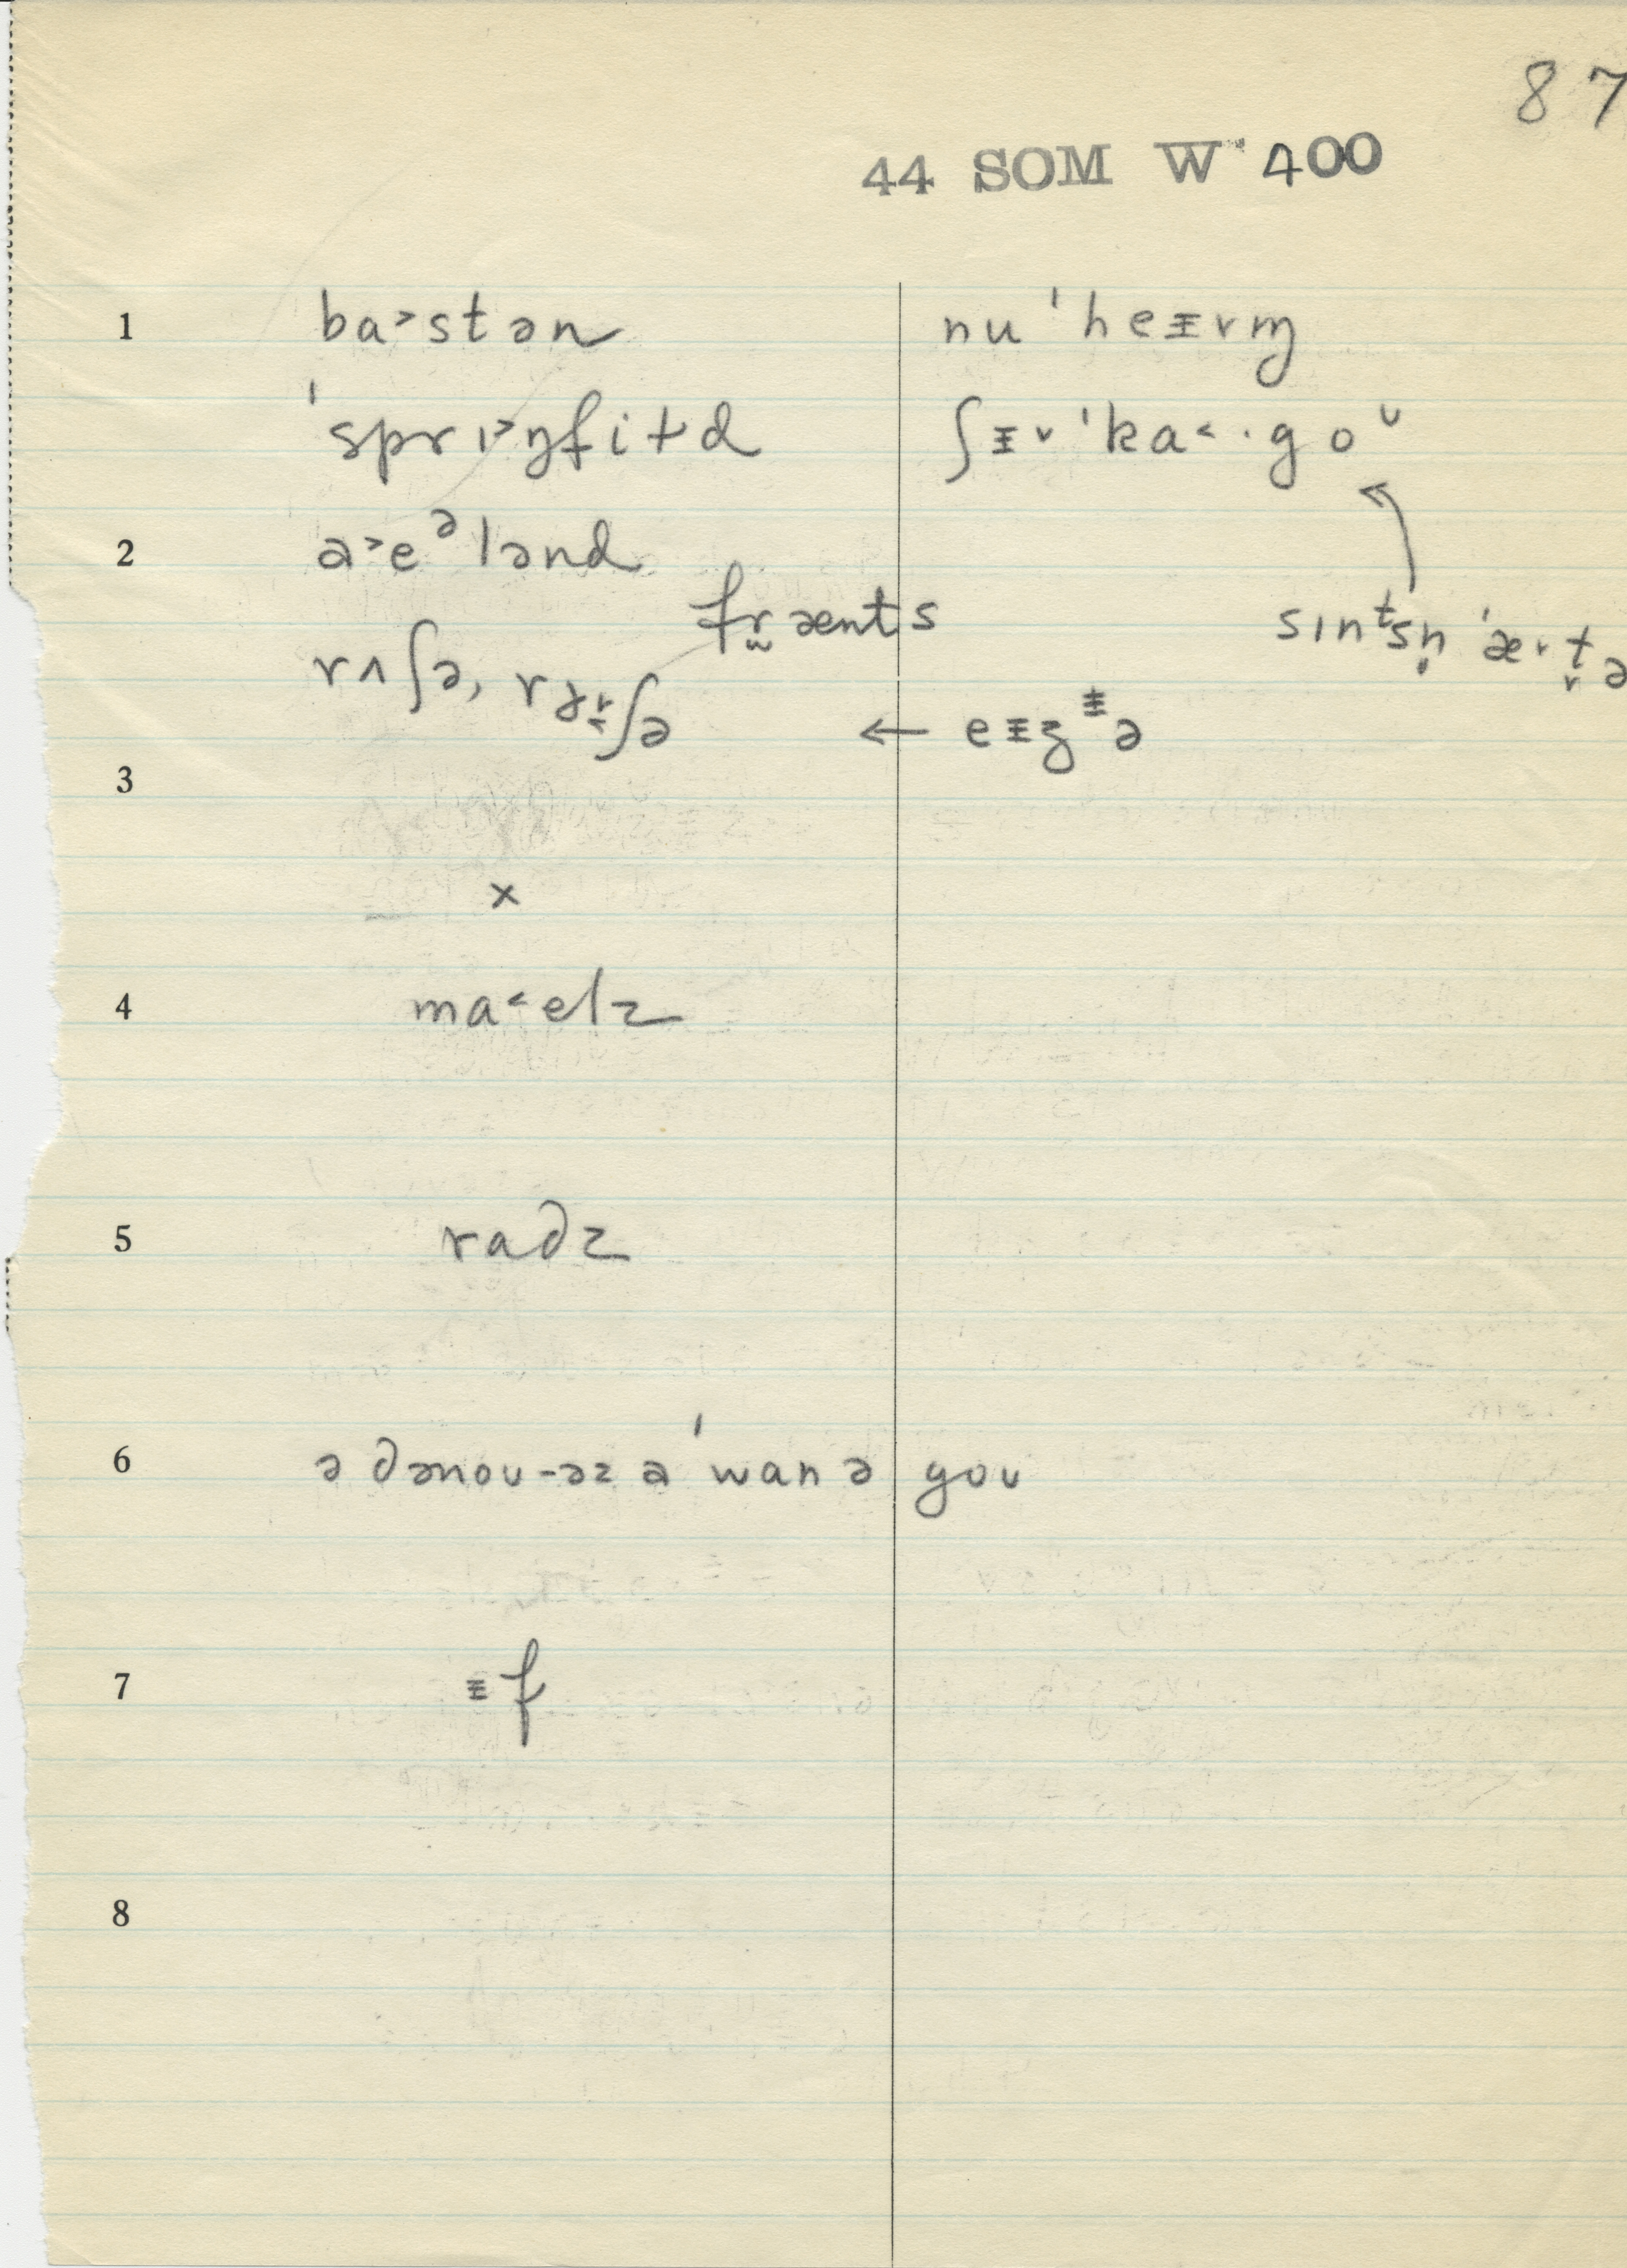 87
44 SOM W 400
1 ba˃stən nu'heᵻvn̩
'sprɪ˃ŋfiɫd ʃᵻ˅'ka˂·goᶸ
2 a˃eᵊlənd
frænts sɪnᵗsn̩'æ˅t̬ə
rʌʃə, ← eᵻʒᵻə
3
x
4 ma˂elz
5 radz
6 ə dənoʊ-əz a 'wanə goʊ
7 ᵻf
8